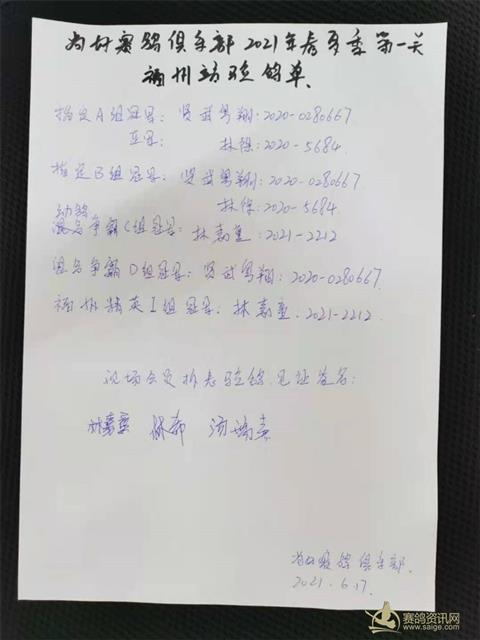 赛鸽俱乐部2021年春夏季第一关
福州站验鸽单
指定A组冠军：贤武粤翔：2020-0280667
亚军：林保：2020-5684
指定B组冠军：贤武粤翔：2020-0280667
林保：2020-5684
幼鸽
混合争霸C组冠军：林嘉：2021-2212
混合争霸D组冠军：贤武粤翔：2020-0280667
福州精英I组冠军：林嘉：2021-2212
现场会员拆志验鸽见证签名：
赛鸽俱乐部
2021.6.17
赛鸽资讯网
www.saige.com